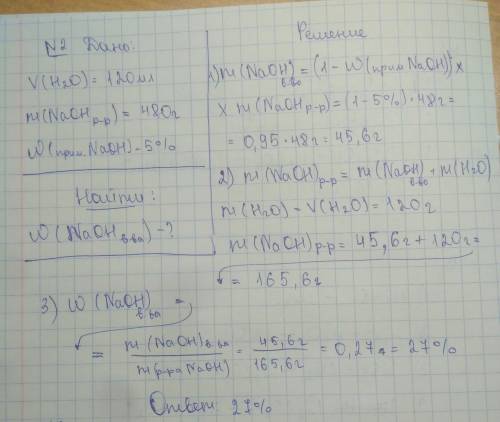 N2 Дано:
V(H₂O) = 120мл
m(NaOH р-р) = 480г
ω(прим NaOH) - 5%
Найти:
ω (NaOH в-ва) - ?
Решение
1) m(NaOH) в-во = (1 - ω(прим NaOH)) ×
× m(NaOH р-р) = (1 - 5%) · 48г =
= 0,95 · 48г = 45,6г
2) m(NaOH) р-р = m(NaOH) в-во + m(H₂O)
m(H₂O) - V(H₂O) = 120г
m(NaOH) р-р = 45,6г + 120г =
= 165,6г
3) ω (NaOH) в-ва =
= m(NaOH) в-ва / m(р-ра NaOH) = 45,6г / 165,6г = 0,27 = 27%
Ответ: 27%